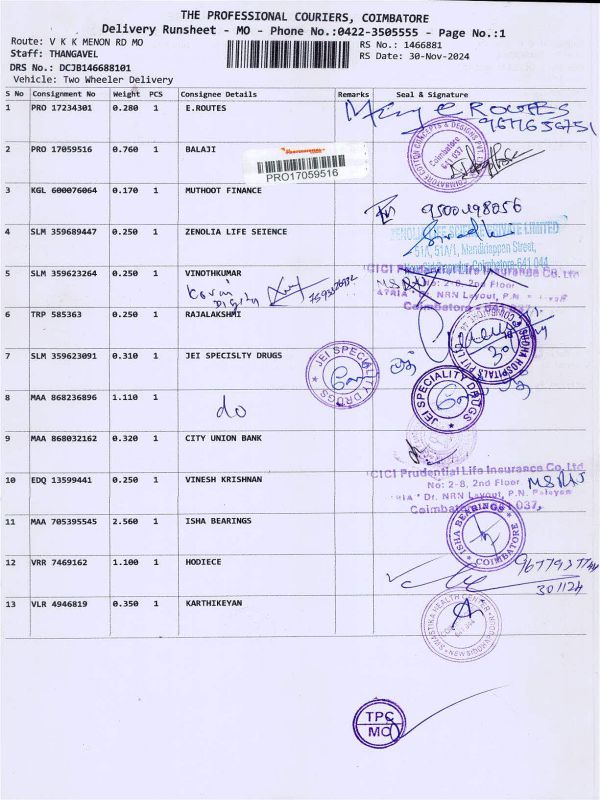 THE PROFESSIONAL COURIERS, COIMBATORE
Delivery Runsheet - MO - Phone No.:0422-3505555 - Page No.:1
Route: V K K MENON RD MO RS No.: 1466881
Staff: THANGAVEL RS Date: 30-Nov-2024
DRS No.: DCJB146688101
Vehicle: Two Wheeler Delivery
S No Consignment No Weight PCS Consignee Details Remarks Seal & Signature
1 PRO 17234301 0.280 1 E.ROUTES
e-ROUTES
9677656751
2 PRO 17059516 0.760 1 BALAJI
PRO17059516
COIMBATORE COTTON CONCEPTS & DESIGNS PVT. LTD.
Coimbatore
641 037
3 KGL 600076064 0.170 1 MUTHOOT FINANCE
9500498056
4 SLM 359689447 0.250 1 ZENOLIA LIFE SEIENCE
ZENOLIA LIFE SCIENCE PRIVATE LIMITED
51A, 51A/1, Street,
Coimbatore-641 044
5 SLM 359623264 0.250 1 VINOTHKUMAR
ICICI Prudential Life Insurance Co. Ltd
No: 2-8, 2nd Floor
ATRIA * Dr. NRN Layout, P.N
Coimbatore - 641 037.
6 TRP 585363 0.250 1 RAJALAKSHMI
SUDHA HOSPITALS PVT LTD
COIMBATORE
30
7 SLM 359623091 0.310 1 JEI SPECISLTY DRUGS
JEI SPECIALITY DRUGS
JEI SPECIALITY DRUGS
8 MAA 868236896 1.110 1
do
9 MAA 868032162 0.320 1 CITY UNION BANK
10 EDQ 13599441 0.250 1 VINESH KRISHNAN
ICICI Prudential Life Insurance Co. Ltd
No: 2-8, 2nd Floor
RIA * Dr. NRN Layout, P.N. Palayam
Coimbatore 037,
11 MAA 705395545 2.560 1 ISHA BEARINGS
ISHA BEARINGS
COIMBATORE
12 VRR 7469162 1.100 1 HODIECE
301124
13 VLR 4946819 0.350 1 KARTHIKEYAN
SWASTIKA HEALTH CENTER
NEW SIDDHAPUDUR
TPC
MO